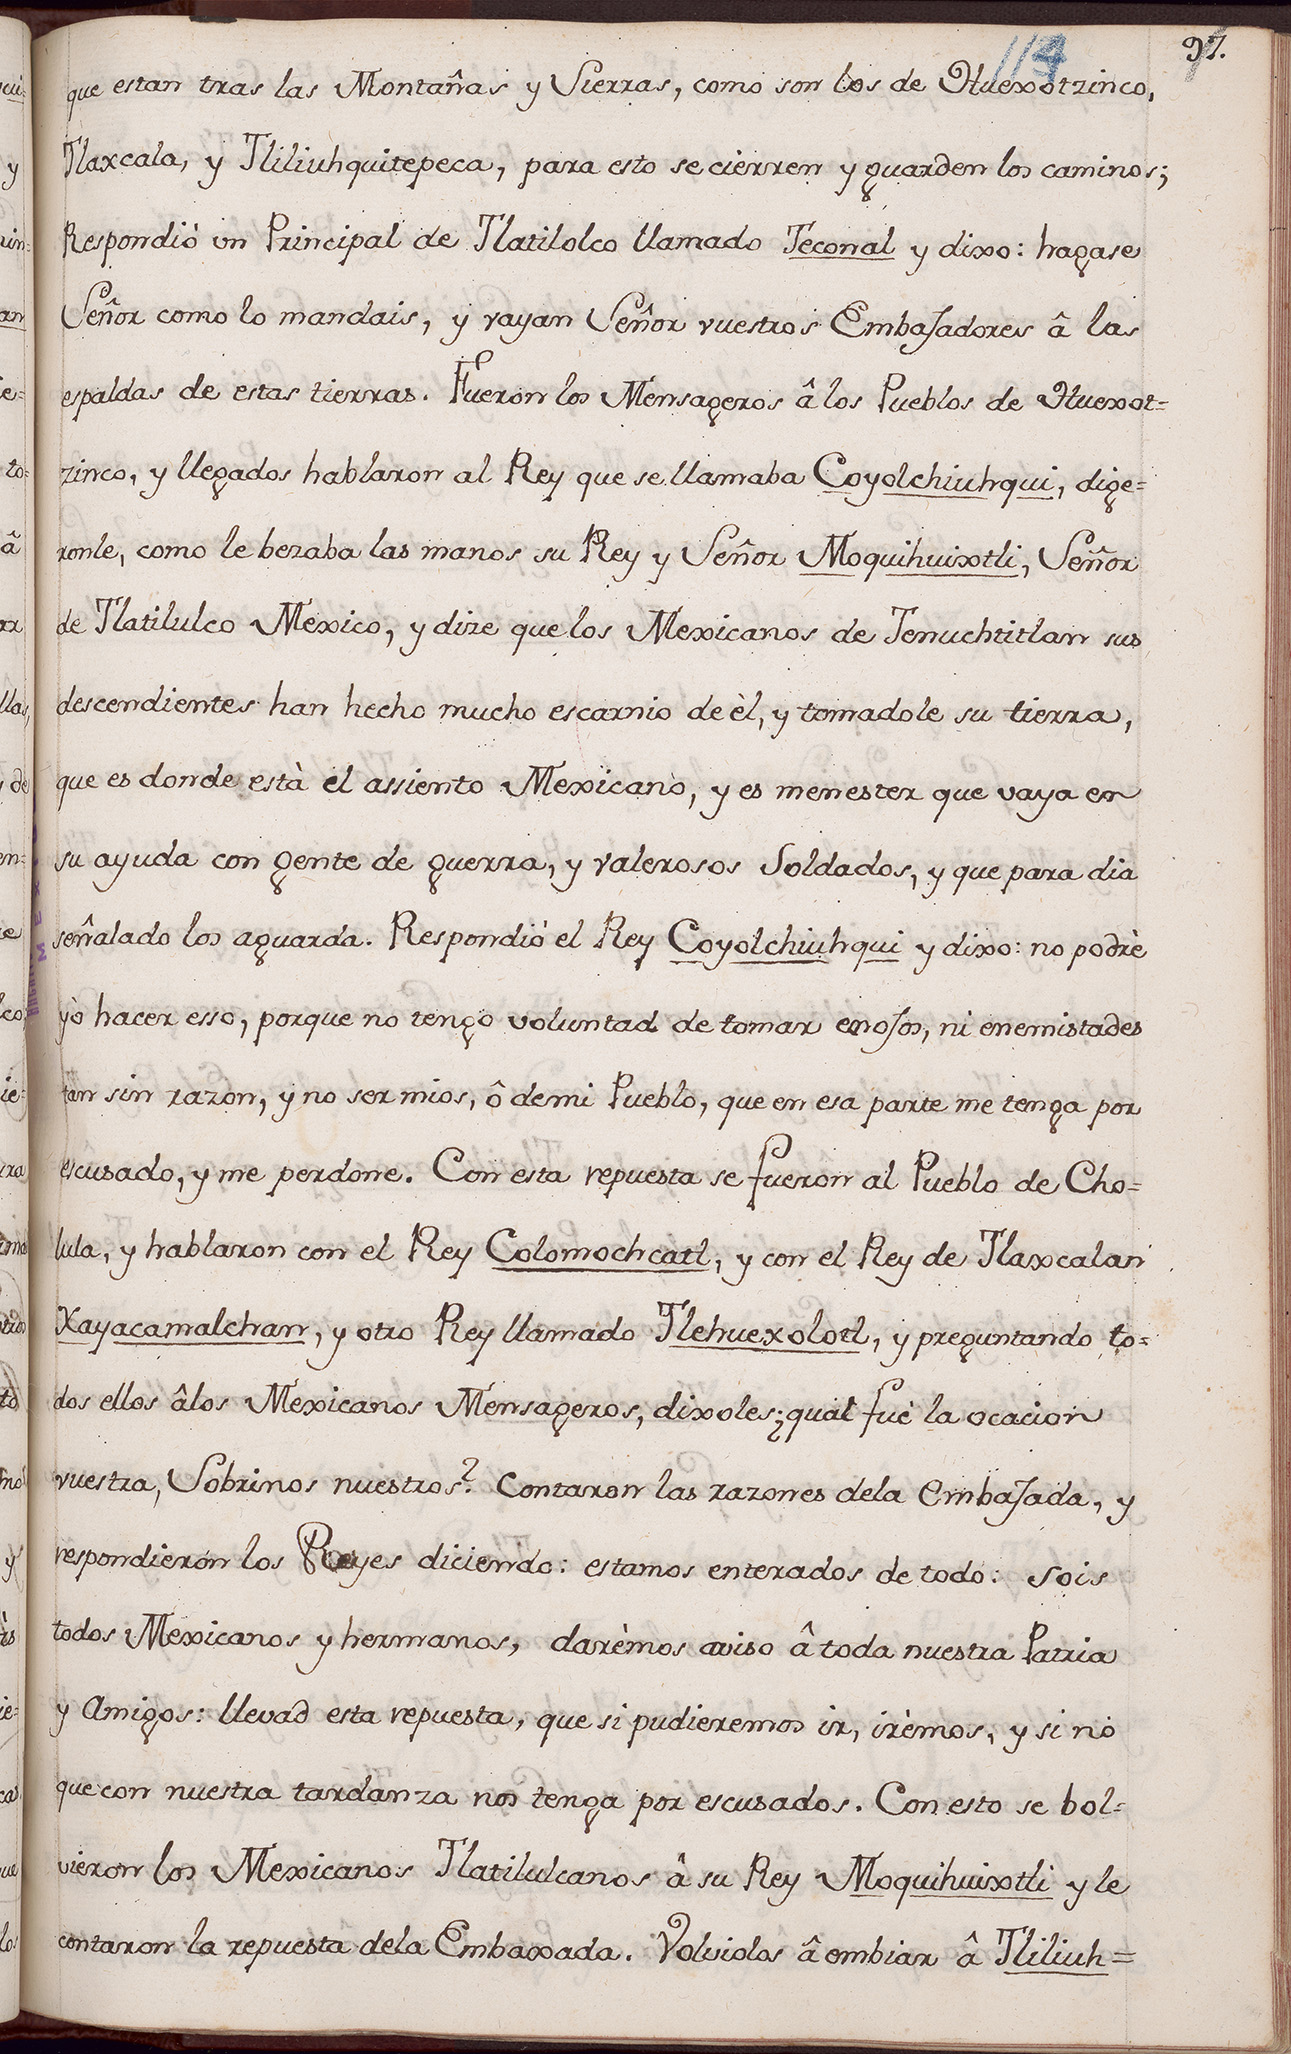 114 97.
que estan tras las Montañas y Sierras, como son los de Huexotzinco,
Tlaxcala, y Tliliuhquitepeca, para esto se cierren y guarden los caminos;
Respondió un Principal de Tlatilolco llamado Teconal y dixo: hagase
Señor como lo mandais, y vayan Señor vuestros Embajadores â las
espaldas de estas tierras. Fueron los Mensageros â los Pueblos de Huexot=
zinco, y llegados hablaron al Rey que se llamaba Coyolchiuhqui, dige=
ronle, como le bezaba las manos su Rey y Señor Moquihuixtli, Señor
de Tlatilulco Mexico, y dize que los Mexicanos de Tenuchtitlan sus
descendientes han hecho mucho escarnio de èl, y tomadole su tierra,
que es donde està el assiento Mexicano, y es menester que vaya en
su ayuda con gente de guerra, y valerosos Soldados, y que para dia
señalado los aguarda. Respondió el Rey Coyolchiuhqui y dixo: no podrè
yò hacer esso, porque no tengo voluntad de tomar enojos, ni enemistades
tan sin razon, y no ser mios, ô de mi Pueblo, que en esa parte me tenga por
escusado, y me perdone. Con esta repuesta se fueron al Pueblo de Cho=
lula, y hablaron con el Rey Colomochcatl, y con el Rey de Tlaxcalan
Xayacamalchan, y otro Rey llamado Tlehuexolotl, y preguntando to=
dos ellos â los Mexicanos Mensageros, dixoles; ¿qual fuè la ocacion
vuestra, Sobrinos nuestros? Contaron las razones dela Embajada, y
respondieron los Reyes diciendo: estamos enterados de todo: sois
todos Mexicanos y hermanos, darèmos aviso â toda nuestra Patria
y Amigos: llevad esta repuesta, que si pudieremos ir, irèmos, y si no
que con nuestra tardanza nos tenga por escusados. Con esto se bol=
vieron los Mexicanos Tlatilulcanos â su Rey Moquihuixtli y le
contaron la repuesta dela Embaxada. Volviolos â embiar â Tliliuh=